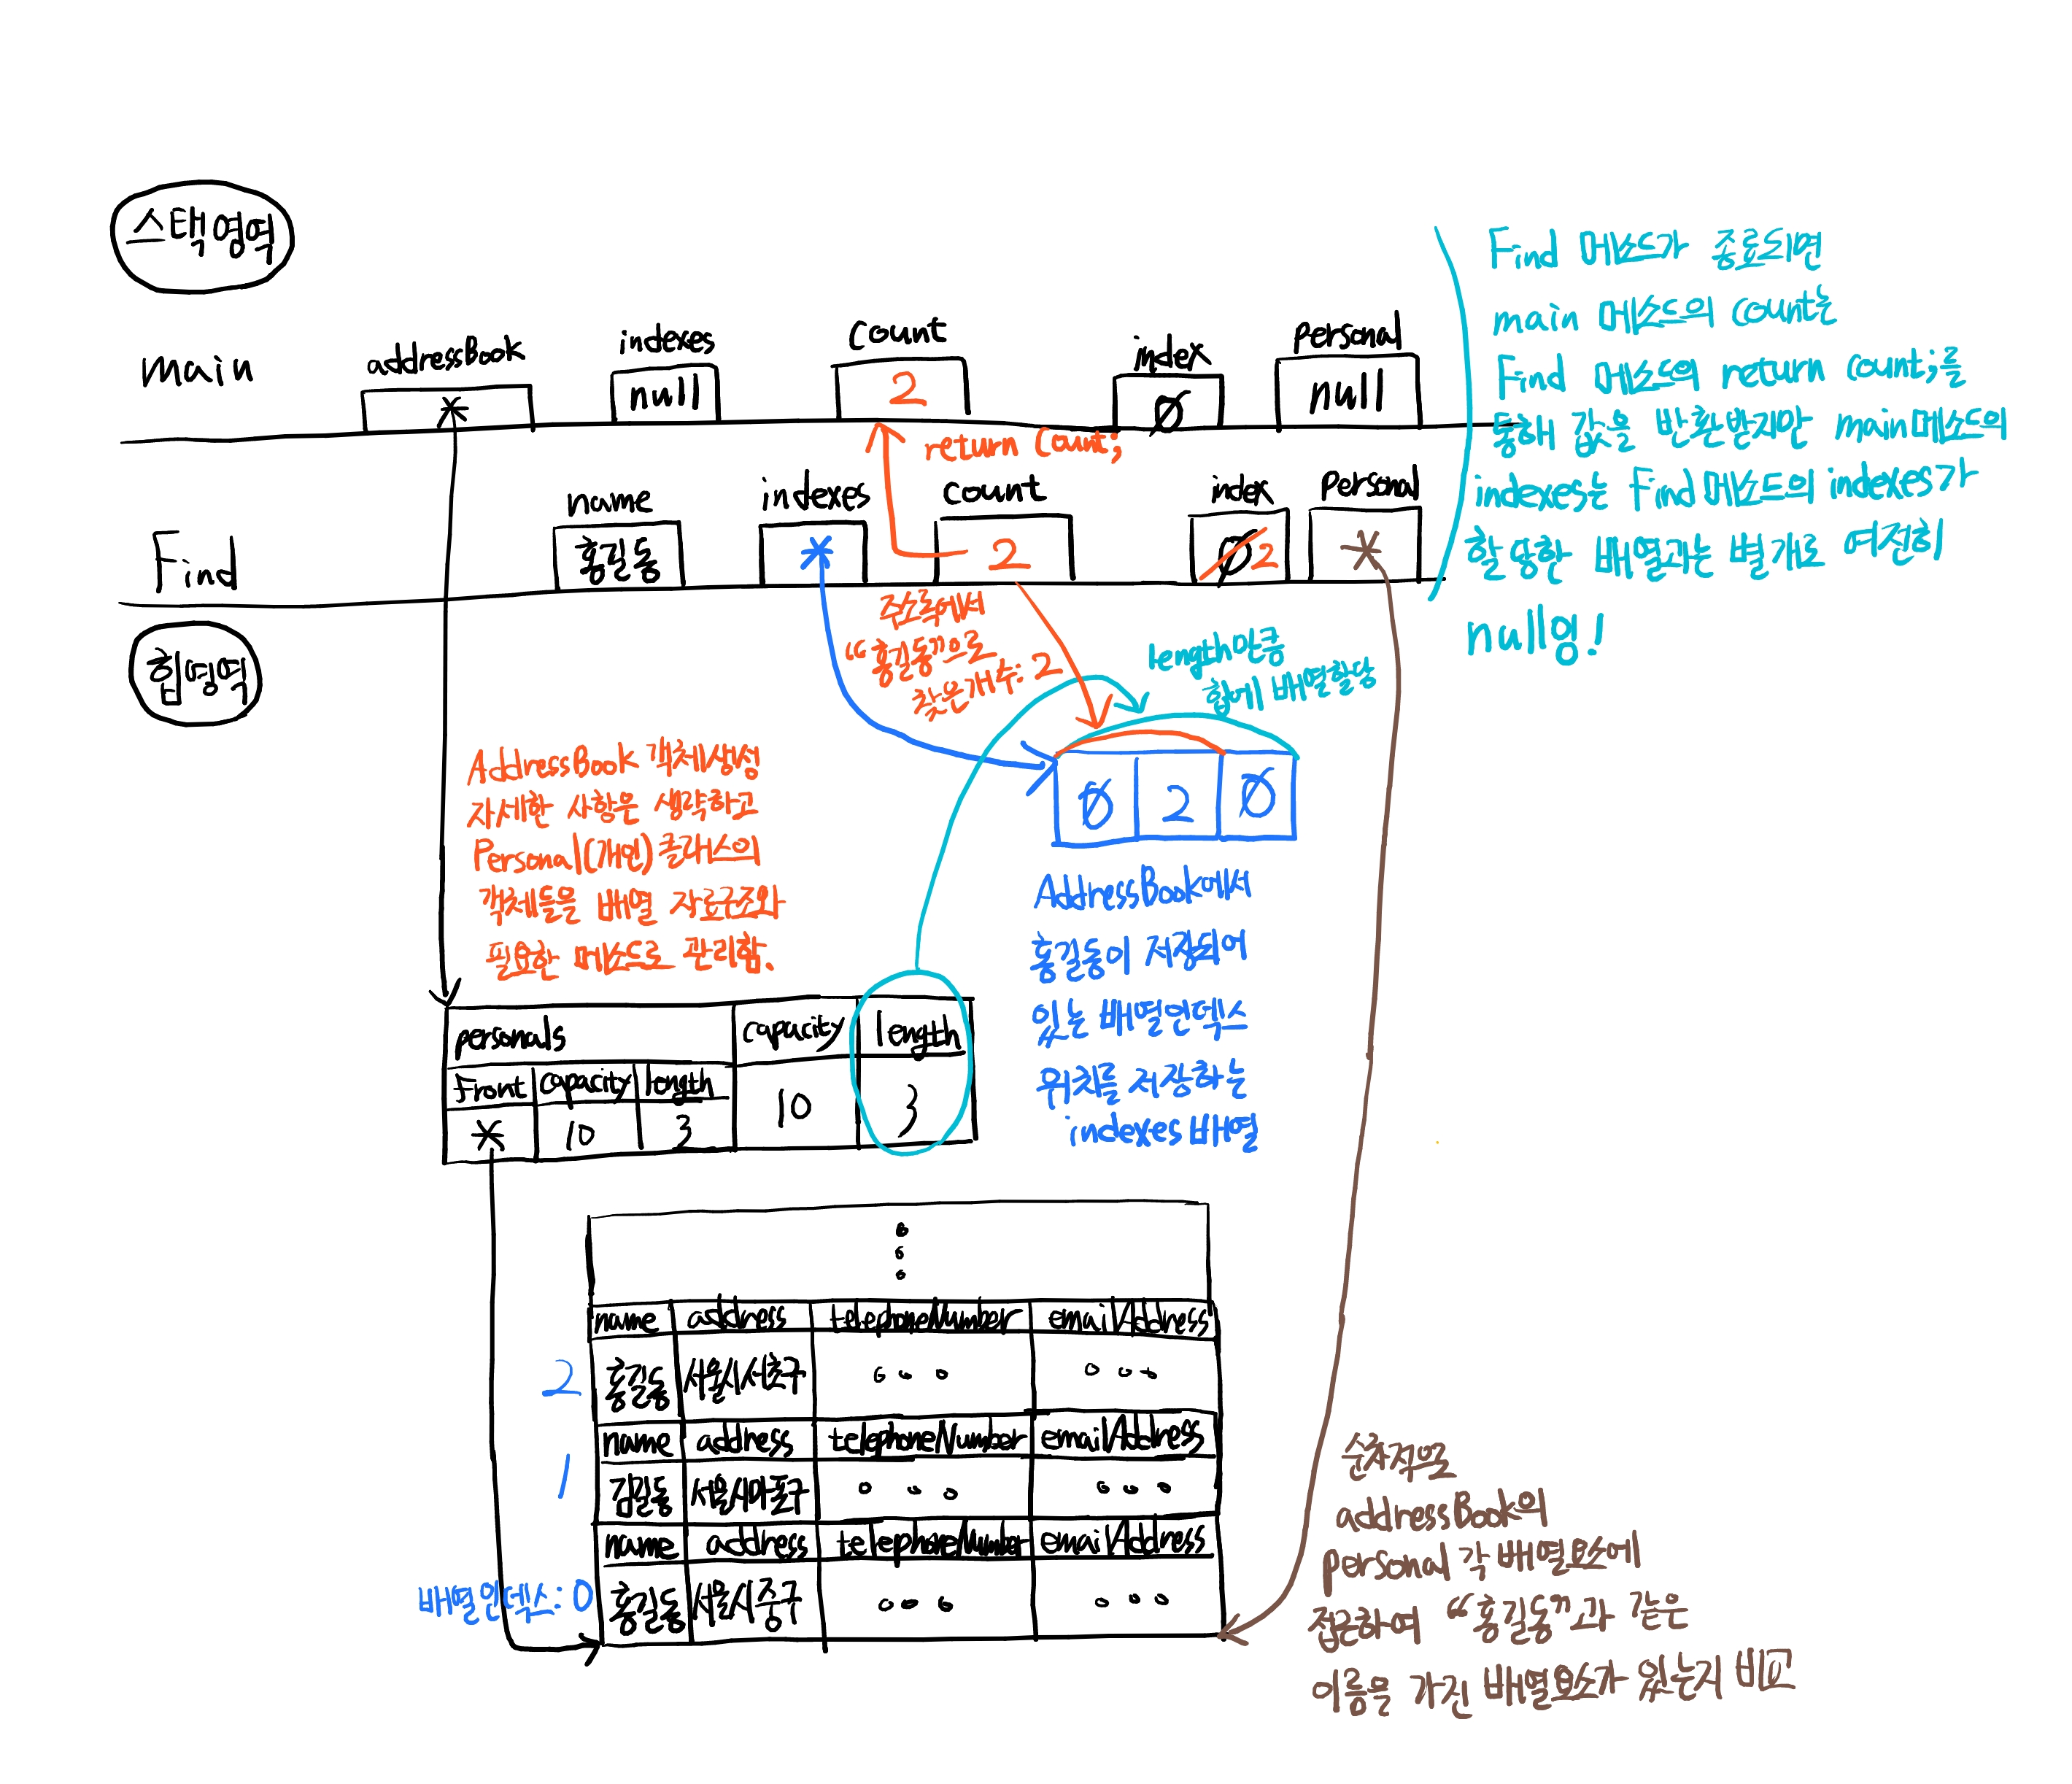 스택영역
main
addressBook
*
indexes
null
count
2
index
0
Personal
null
return count;
Find
name
홍길동
indexes
*
count
2
index
0 2
Personal
*
Find 메소드가 종료되면
main 메소드의 count는
Find 메소드의 return count;를
통해 값을 반환받지만 main메소드의
indexes는 Find메소드의 indexes가
할당한 배열과는 별개로 여전히
null임!
힙영역
주소록에서
“홍길동”으로
찾은개수: 2
length만큼
힙에 배열할당
0 2 0
AddressBook 객체생성
자세한 사항은 생략하고
Personal(개인)클래스의
객체들을 배열 자료구조와
필요한 메소드로 관리함.
AddressBook에서
홍길동이 저장되어
있는 배열인덱스
위치를 저장하는
indexes 배열
personals capacity length
Front capacity length
* 10 3 10 3
name address telephoneNumber emailAddress
2 홍길동 서울시서초구
name address telephoneNumber emailAddress
1 김길동 서울시마포구
name address telephoneNumber emailAddress
배열인덱스: 0 홍길동 서울시중구
순차적으로
addressBook의
personal 각 배열요소에
접근하여 “홍길동”과 같은
이름을 가진 배열요소가 있는지 비교